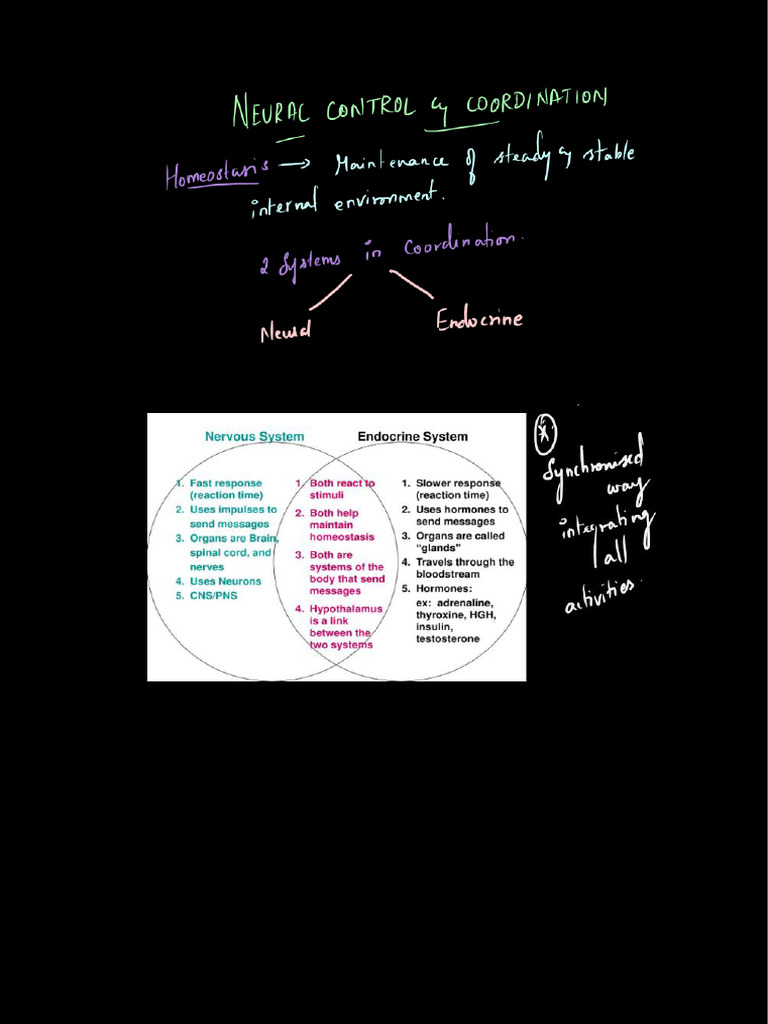 NEURAL CONTROL & COORDINATION
Homeostasis → Maintenance of steady & stable
internal environment.
2 Systems in Coordination.
Neural
Endocrine
Nervous System
1. Fast response
(reaction time)
2. Uses impulses to
send messages
3. Organs are Brain,
spinal cord, and
nerves
4. Uses Neurons
5. CNS/PNS
1. Both react to
stimuli
2. Both help
maintain
homeostasis
3. Both are
systems of the
body that send
messages
4. Hypothalamus
is a link
between the
two systems
Endocrine System
1. Slower response
(reaction time)
2. Uses hormones to
send messages
3. Organs are called
“glands”
4. Travels through the
bloodstream
5. Hormones:
ex: adrenaline,
thyroxine, HGH,
insulin,
testosterone
* Synchronised
way
integrating
all
activities.